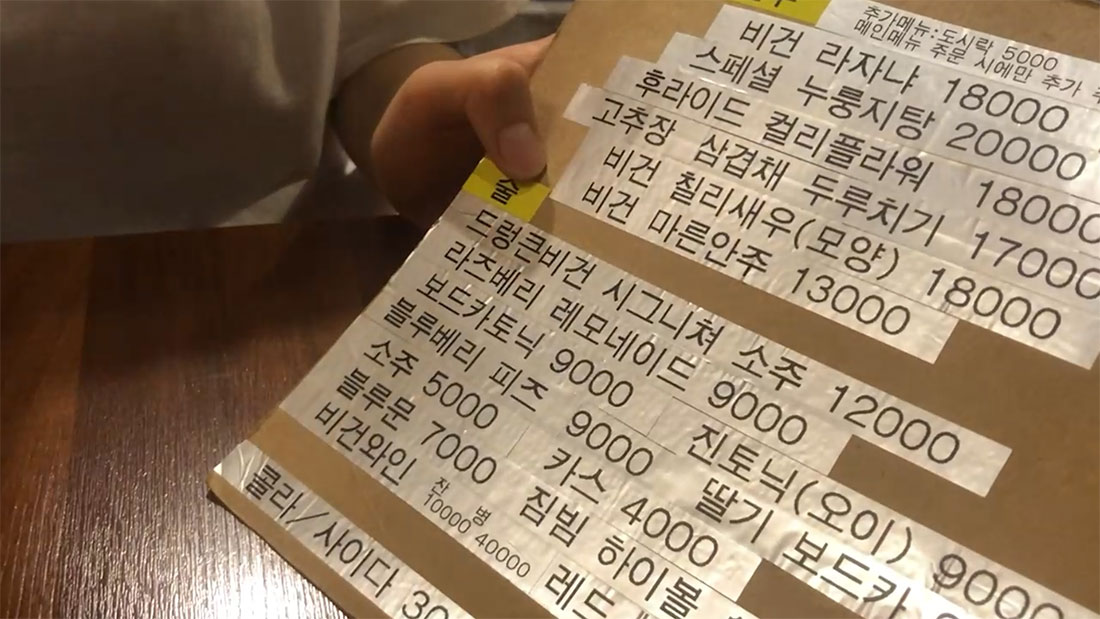 추가메뉴:도시락 5000
메인메뉴 주문 시에만 추가
비건 라자냐 18000
스페셜 누룽지탕 20000
후라이드 컬리플라워 18000
고추장 삼겹채 두루치기 17000
비건 칠리새우(모양) 18000
비건 마른안주 13000
술
드렁큰비건 시그니쳐 소주 12000
라즈베리 레모네이드 9000
보드카토닉 9000 진토닉(오이) 9000
블루베리 피즈 9000 딸기 보드카
소주 5000 카스 4000
블루문 7000 짐빔 하이볼
비건와인 잔 10000 병 40000 레드
콜라/사이다 30